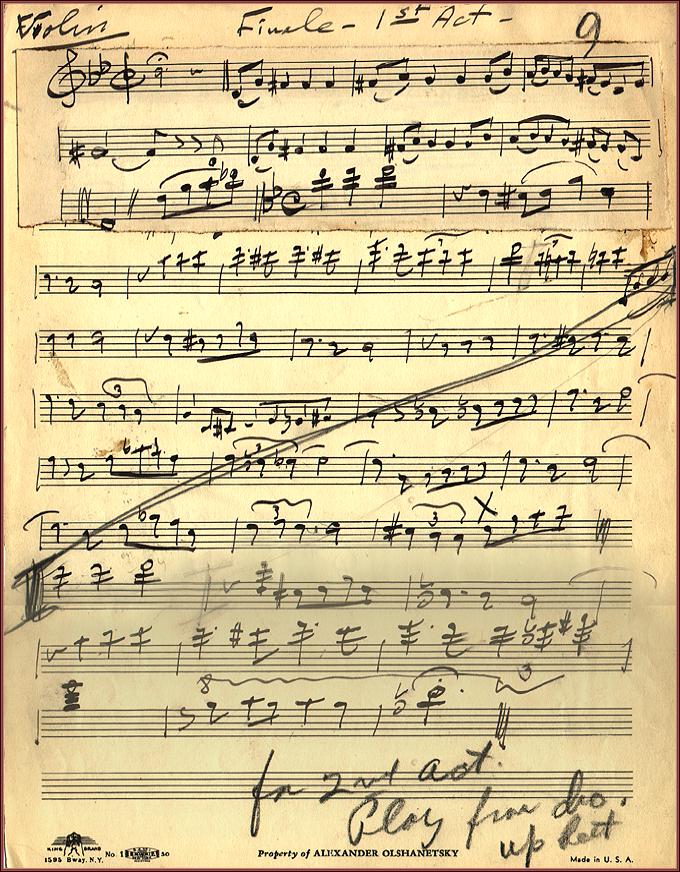 Violin Finale - 1st Act - 9
3
3
3
8 3
for 2nd act.
Play from
up
KING BRAND
1595 Bway. N.Y. No. 1
Property of ALEXANDER OLSHANETSKY
Made in U. S. A.